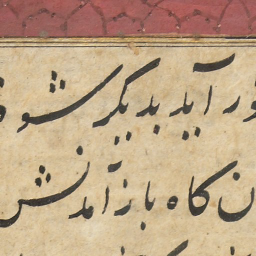 ور آید بدیگر شود
ن کاه باز آمدنش